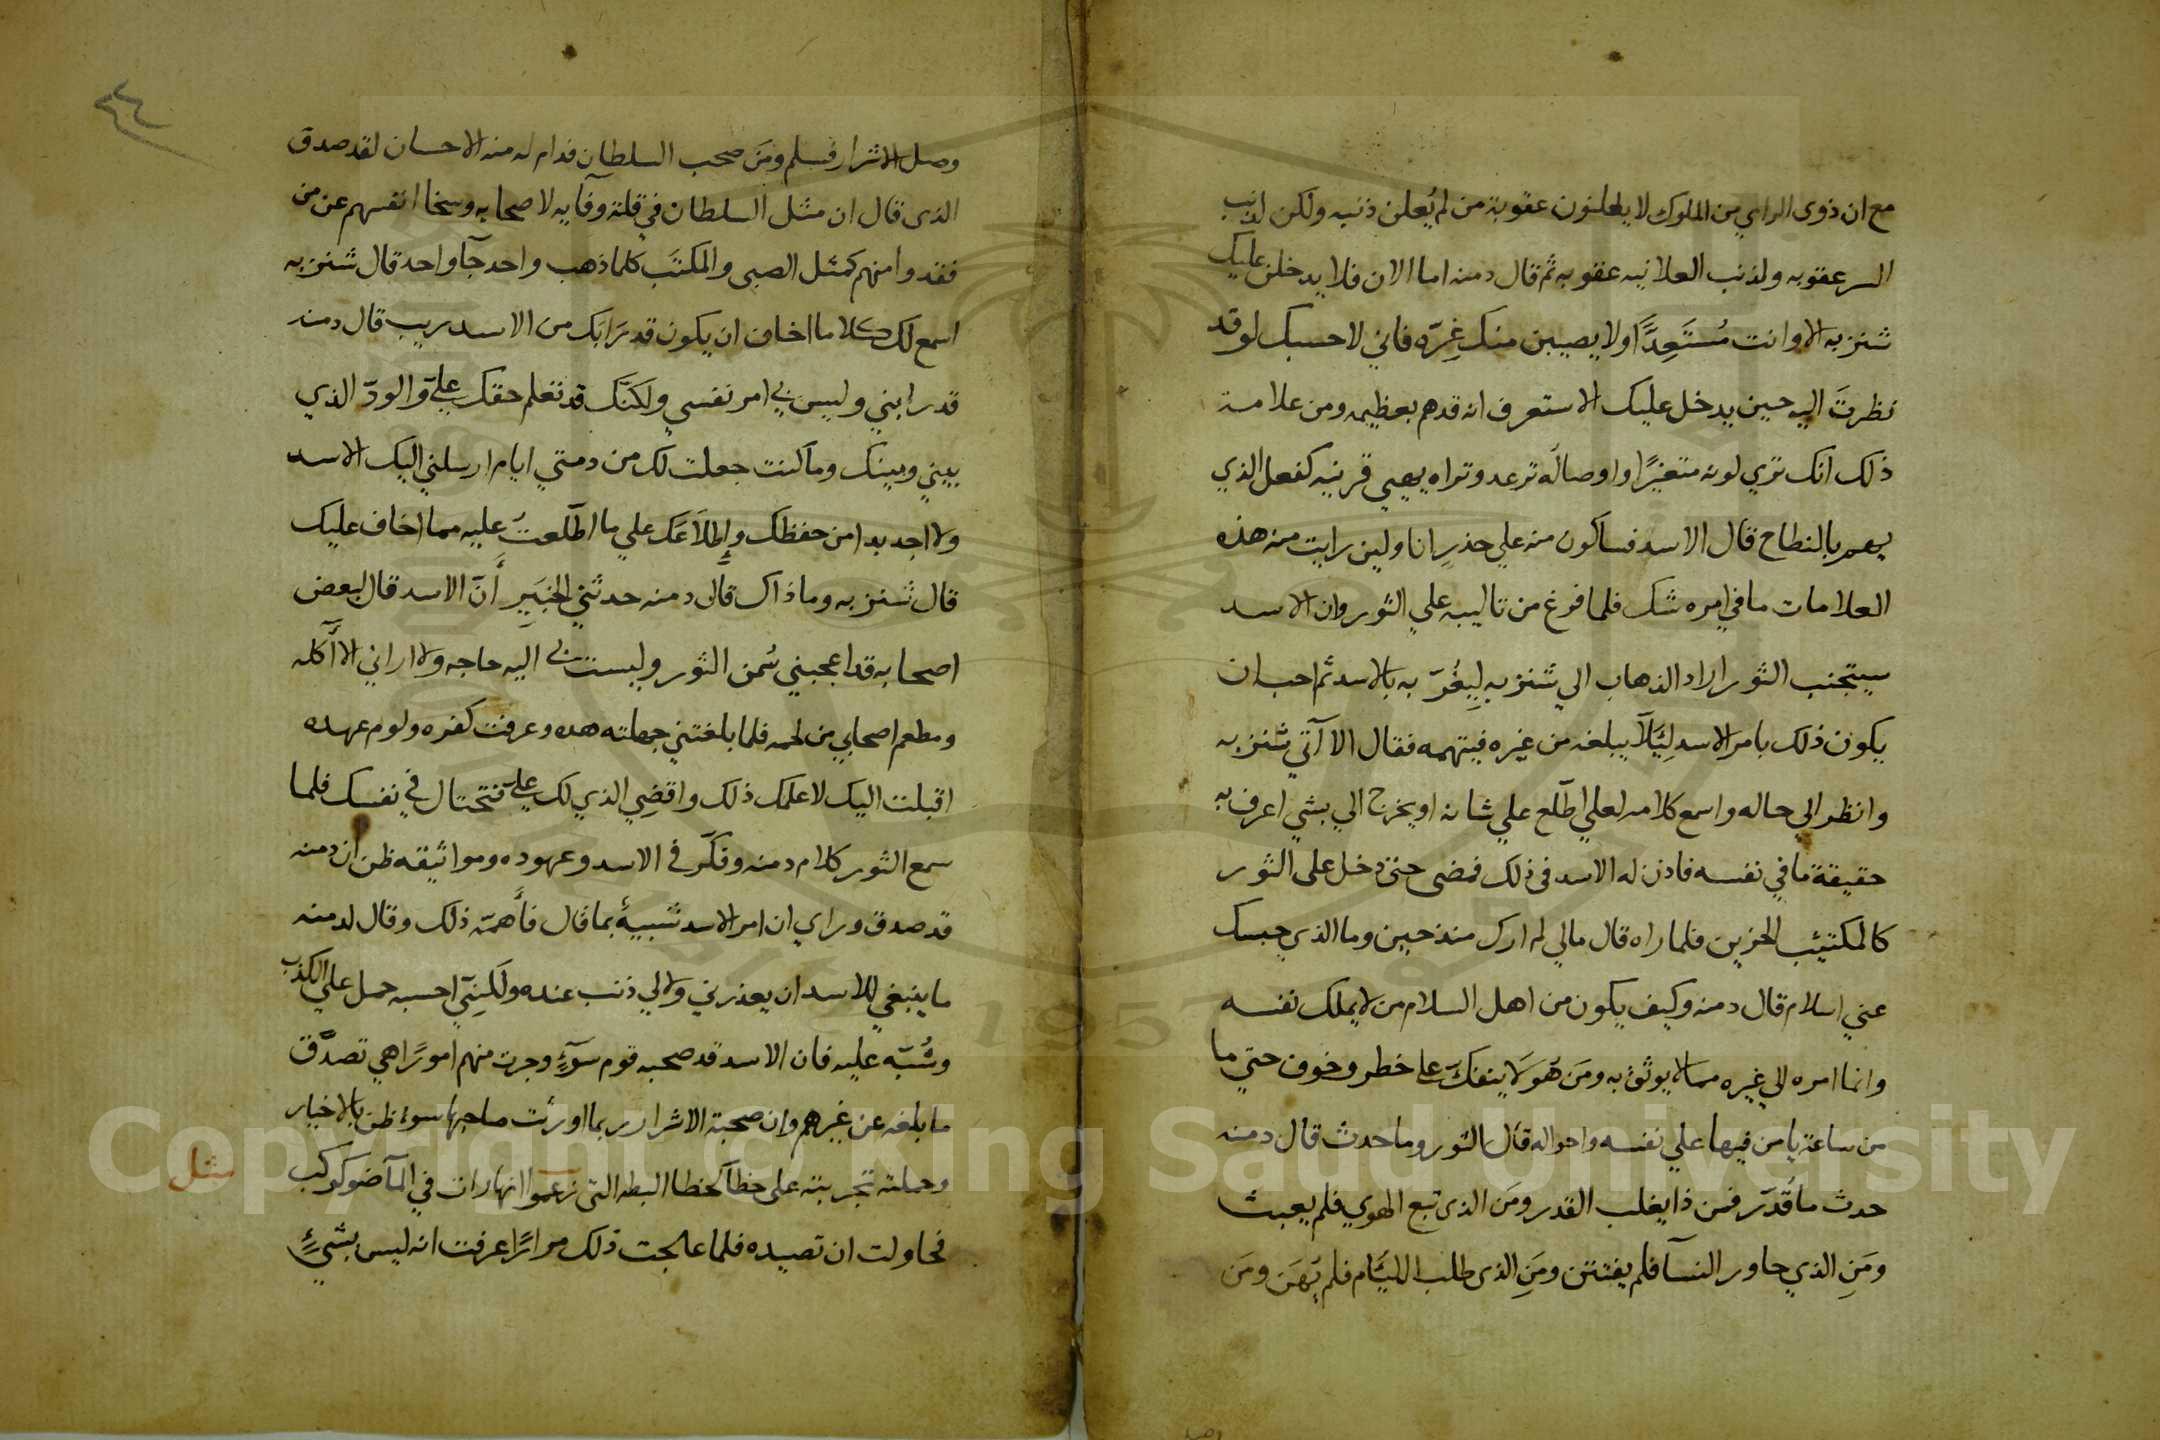 مع ان ذوى الراي من الملوك لا يعلنون عقوبة من لم يُعلن ذنبه ولكن لذنب
السر عقوبه ولذنب العلانيه عقوبه ثم قال دمنه اما الان فلا يدخلن عليك
شنزبه الا وانت مُستَعِدًّا ولا يصيبن منك غِرّه فاني لاحسبك لو قد
نظرتَ اليه حين يدخل عليك لاستعرف انه قد هم بعظيمه ومن علامة
ذلك انك تري لونه متغيرًا واوصاله ترعد وتراه يهيي قرنيه كفعل الذي
يهم بالنطاح قال الاسد فساكون منه علي حذرٍ انا ولين رايت منه هذه
العلامات ما في امره شك فلما فرغ من تاليبه علي الثور وان الاسد
سيتجنب الثور اراد الذهاب الي شنزبه ليغرّ به بالاسد ثم احب ان
يكون ذلك بامر الاسد لِيَلّا يبلغه من غيره فيتهمه فقال الا آتي شنزبه
وانظر الى حاله واسمع كلامه لعلي اطّلع علي شانه او يخرج الي بشي اعرف به
حقيقة ما في نفسه فاذن له الاسد فى ذلك فمضى حتى دخل على الثور
كالمكتئب الحزين فلما راه قال مالي لم ارك منذ حين وما الذي حبسك
عني اسلام قال دمنه وكيف يكون من اهل السلام من لا يملك نفسه
وانما امره الي غيره مما لا يوثق به ومَن هُوَ لا ينفكّ على خطر وخوف حتي ما
من ساعة يامن فيها علي نفسه واحواله قال الثور وما حدث قال دمنه
حدث ما قُدّر فمن ذا يغلب القدر ومَن الذى تبع الهوي فلم يعبث
ومَنِ الذي جاور النسآ فلم يفتتن ومَنِ الذى طلب اللئام فلم يُهَن ومَن
٤٤
وصل الاشرار فسلم ومَن صحب السلطان فدام له منه الاحسان لقد صدق
الذى قال ان مثل السلطان في قلة وفآيه لاصحابه وسخا انفسهم عن من
فقد وامنهم كمثل الصبى والمكتَب كلما ذهب واحد جآ واحد قال شنزبه
اسمع لك كلاما اخاف ان يكون قد رَابَك من الاسد ريب قال دمنه
قد رابني وليس لي امر نفسي ولكنّك قد تعلم حقك عليّ والودّ الذي
بيني وبينك وما كنت جعلت لك من ذمتي ايام ارسلني اليك الاسد
ولا اجد بدا من حفظك واِطلاعك علي ما اطّلعتُ عليه مما اخاف عليك
قال شنزبه وما ذاك قال دمنه حدثني الخبَيِر أَنّ الاسد قال لبعض
اصحابه قد اعجبني سُمن الثور وليست لي اليه حاجه ولا اراني الا آكله
ومطعم اصحابي من لحمه فلما بلغتني جملته هده وعرفت كفره ولوم عهده
اقبلت اليك لاعلمك ذلك واقضِي الذي لك عليّ فتحتال في نفسك فلما
سمع الثور كلام دمنه وفكّر فى الاسد وعهوده ومواثيقه ظن ان دمنه
قد صدق وراي ان امر الاسد شبيهٌ بما قال فأهمّه ذلك وقال لدمنه
ما ينبغي للاسد ان يعذرني ولا لي ذنب عنده ولكنِّي احسبه حمل علي الكذب
وشُبّه عليه فان الاسد قد صحبه قوم سَوءٍ وجرت منهم امورًا هي تصدّق
ما بلغه عن غيرهم وان صحبة الاشرار ربما اورثت صاحبها سوء ظن بالاخيار
وحملته تجربته على خطآ كخطا البطه التى زعموا انها رات في المآ ضو كوكب
مثل
فحاولت ان تصيده فلما عالجت ذلك مرارًا عرفت انه ليس بشيءٍ
Copyright © King Saud University
1957